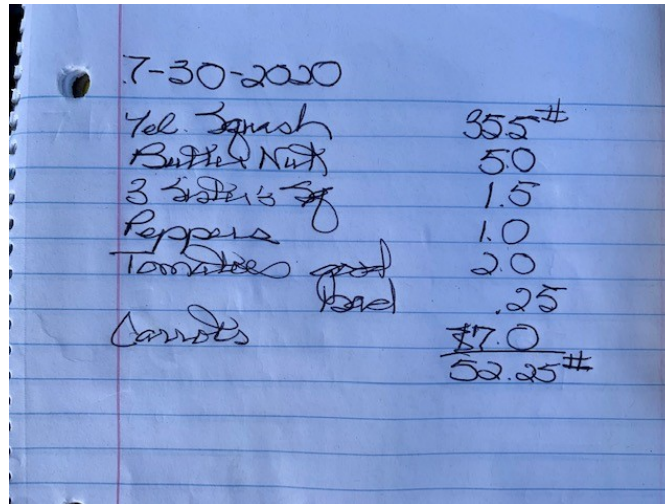 7-30-2020
Yel. Squash 35.5#
Butter Nut 5.0
3 Sister's Sq 1.5
Peppers 1.0
Tomatoes good 2.0
bad .25
Carrots 7.0
52.25#